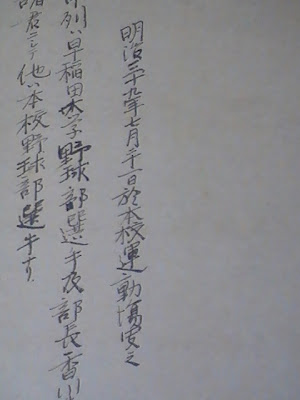 明治三十九年七月三十一日於本校運動場写之
列ハ早稲田大学野球部選手及部長
諸君ニシテ他ハ本校野球部選手ナリ